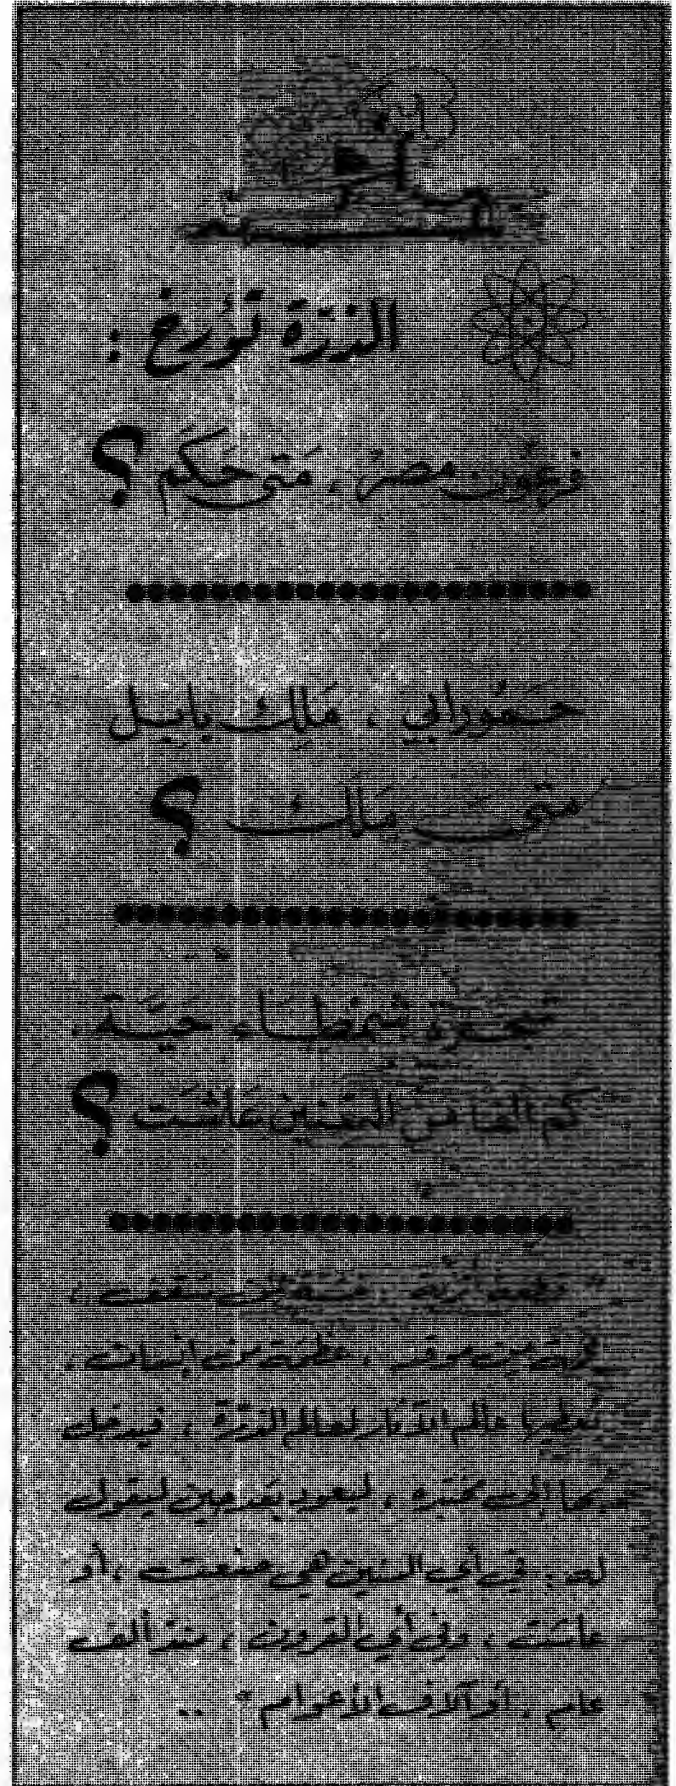 الذرّة تؤرخ :
فرعون مصر ، متى حكم ؟
حمورابي . ملك بابل
متى ملك ؟
شجرة شمطاء حية .
كم ألفا من السنين عاشت ؟
خشبة من سقف ،
فحمة من موقد ، عظمة من إنسان ،
يعطيها عالم الآثار لعالم الذرّة ، فيدخل
بها إلى مختبره ، ليعود بعد حين ليقول
له : في أي السنين هي صنعت ، أو
عاشت ، وفي أي القرون ، منذ ألف
عام ، أو آلاف الأعوام ..